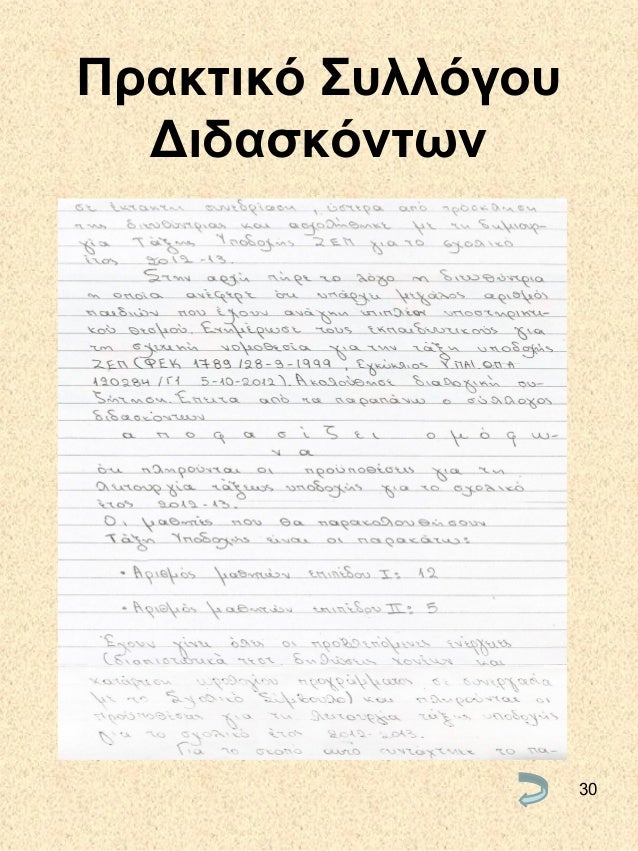 Πρακτικό Συλλόγου
Διδασκόντων
σε έκτακτη συνεδρίαση, ύστερα από πρόσκληση
της διευθύντριας και ασχολήθηκε με τη δημιουρ-
γία Τάξης Υποδοχής ΖΕΠ για το σχολικό
έτος 2012-13.
Στην αρχή πήρε το λόγο η διευθύντρια
η οποία ανέφερε ότι υπάρχει μεγάλος αριθμός
παιδιών που έχουν ανάγκη επιπλέον υποστηρικτι-
κού θεσμού. Ενημέρωσε τους εκπαιδευτικούς για
τη σχετική νομοθεσία για την τάξη υποδοχής
ΖΕΠ (ΦΕΚ 1789/28-9-1999, Εγκύκλιος Υ.ΠΑΙ.Θ.Π.Α
120284/Γ1 5-10-2012). Ακολούθησε διαλογική συ-
ζήτηση. Έπειτα από τα παραπάνω ο σύλλογος
διδασκόντων
α π ο φ α σ ί ζ ε ι ο μ ό φ ω-
ν α
ότι πληρούνται οι προϋποθέσεις για τη
λειτουργία τάξεως υποδοχής για το σχολικό
έτος 2012-13.
Οι μαθητές που θα παρακολουθήσουν
Τάξη Υποδοχής είναι οι παρακάτω:
• Αριθμός μαθητών επιπέδου Ι: 12
• Αριθμός μαθητών επιπέδου ΙΙ: 5
Έχουν γίνει όλες οι προβλεπόμενες ενέργειες
(διαπιστωτικά τεστ, δηλώσεις γονέων και
κατάρτιση ωρολογίου προγράμματος σε συνεργασία
με το Σχολικό Σύμβουλο) και πληρούνται οι
προϋποθέσεις για τη λειτουργία τάξης υποδοχής
για το σχολικό έτος 2012-2013.
Για το σκοπό αυτό συντάχτηκε το πα-
30